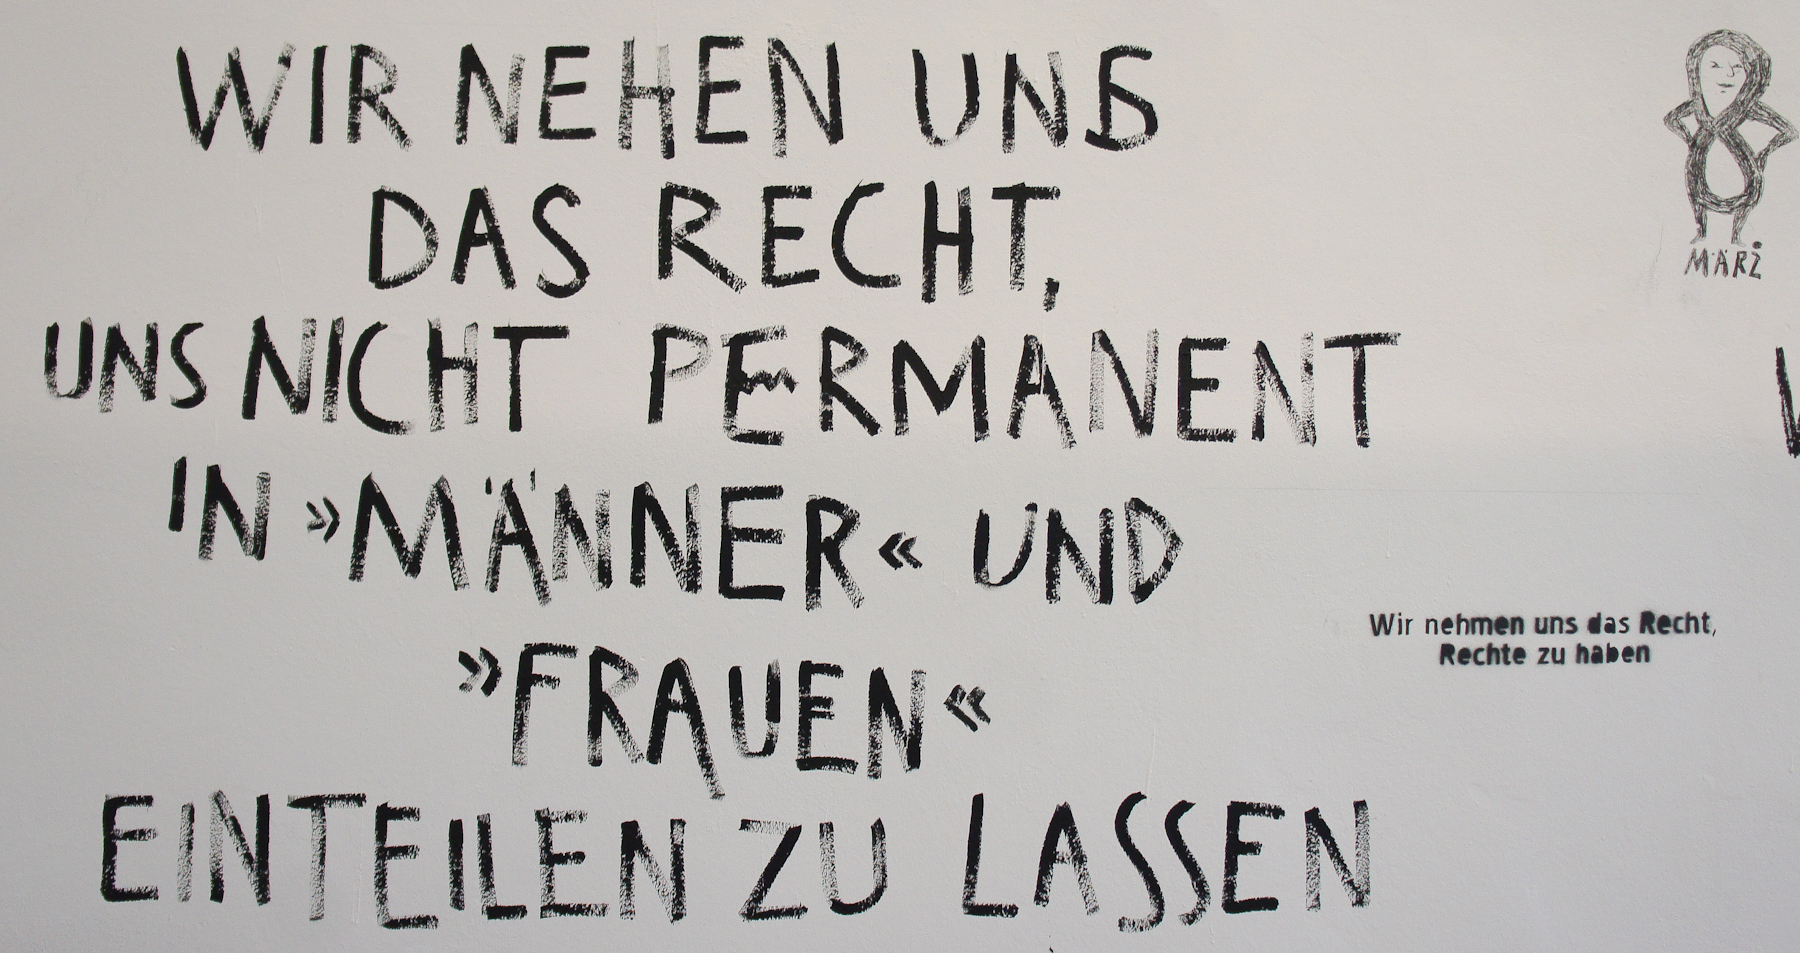 WIR NEHEN UNS
DAS RECHT,
UNS NICHT PERMANENT
IN »MÄNNER« UND
»FRAUEN«
EINTEILEN ZU LASSEN
8
MÄRZ
Wir nehmen uns das Recht,
Rechte zu haben